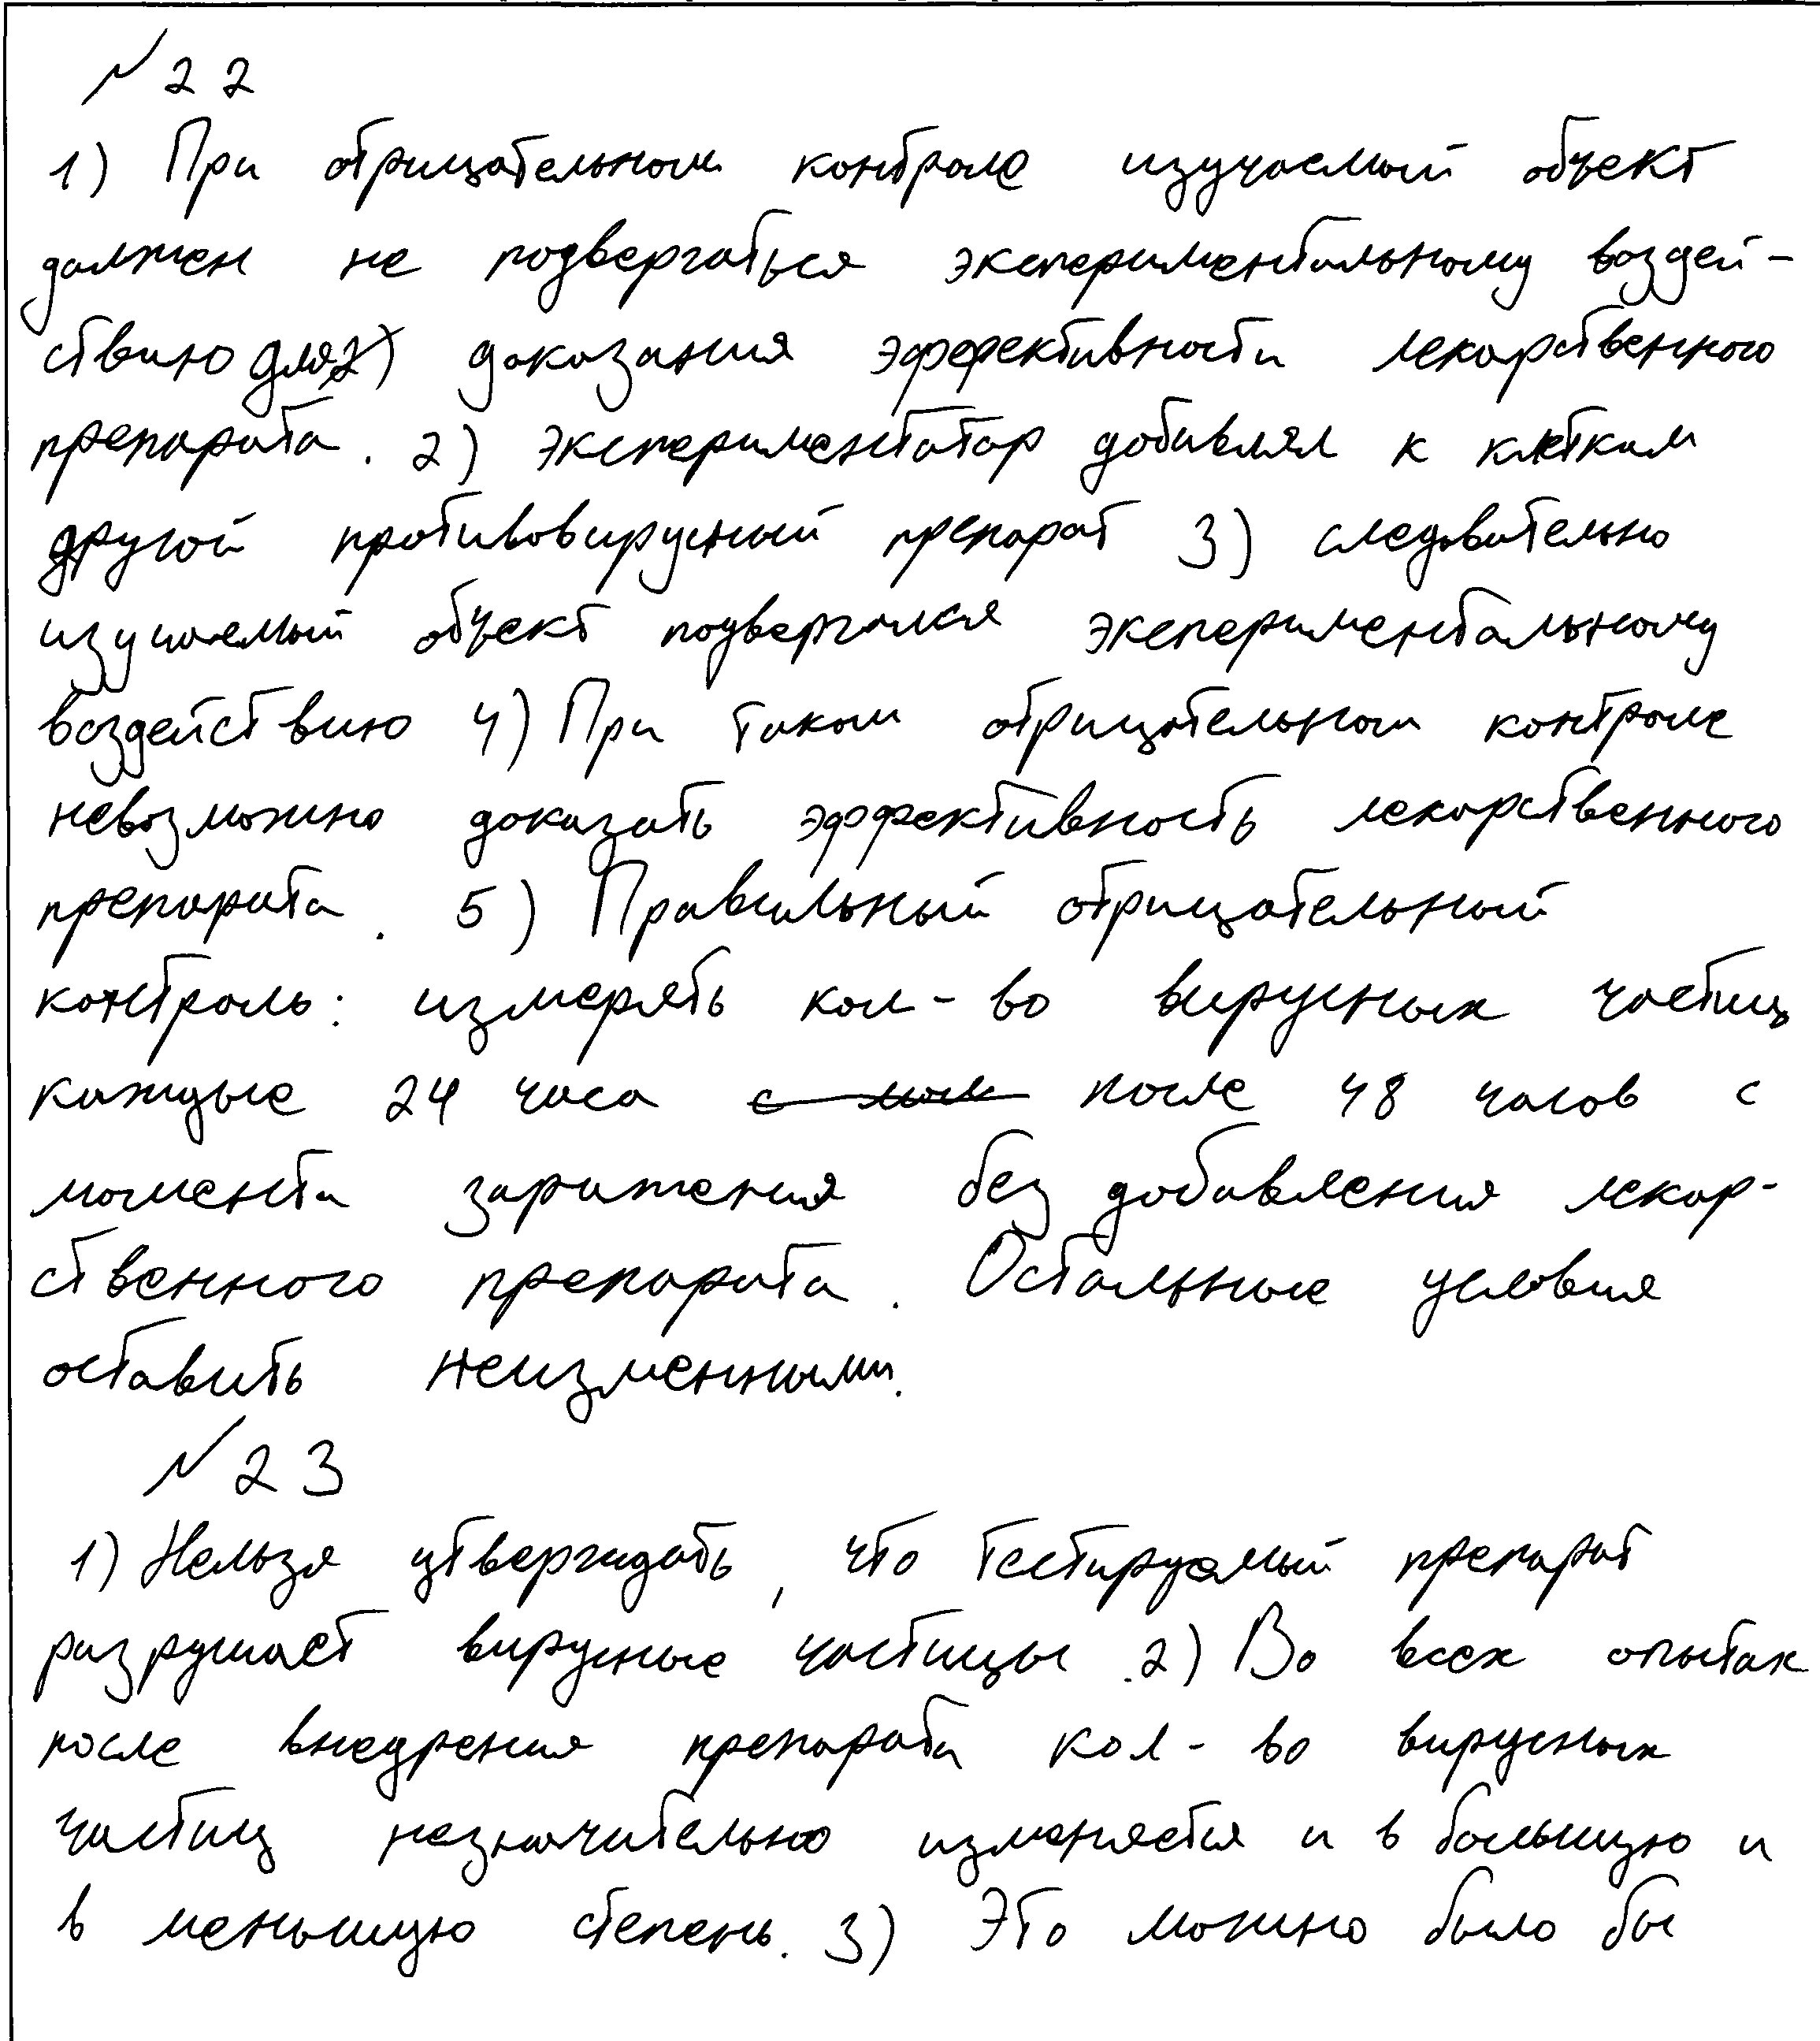 № 22
1) При отрицательном контроле изучаемый объект
должен не подвергаться экспериментальному воздей-
ствию для доказания эффективности лекарственного
препарата. 2) Экспериментатор добавлял к клеткам
другой противовирусный препарат 3) следовательно
изучаемый объект подвергался экспериментальному
воздействию 4) При таком отрицательном контроле
невозможно доказать эффективность лекарственного
препарата. 5) Правильный отрицательный
контроль: измерять кол-во вирусных частиц
каждые 24 часа после 48 часов с
момента заражения без добавления лекар-
ственного препарата. Остальные условия
оставить неизменными.
№ 23
1) Нельзя утверждать, что тестируемый препарат
разрушает вирусные частицы. 2) Во всех опытах
после внедрения препарата кол-во вирусных
частиц незначительно изменяется и в большую и
в меньшую степень. 3) Это можно было бы